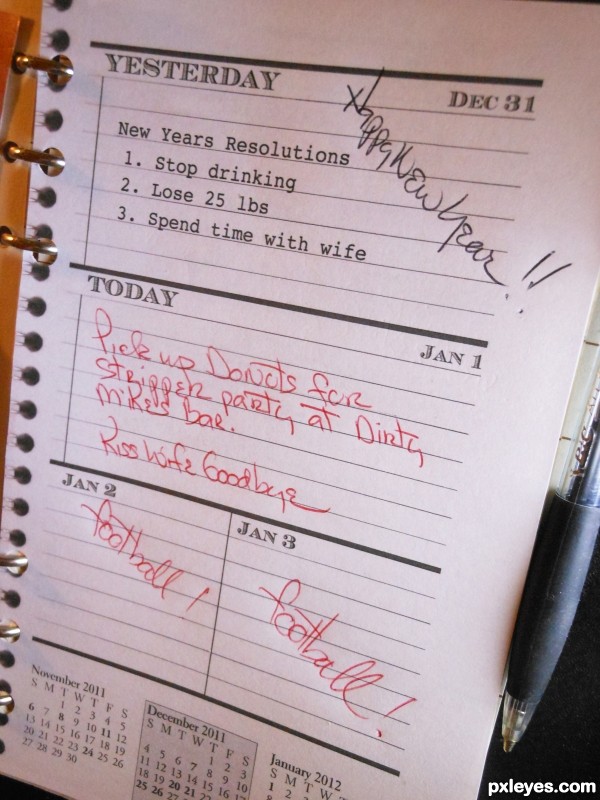 YESTERDAY
DEC 31
Happy New Year!!
New Years Resolutions
1. Stop drinking
2. Lose 25 lbs
3. Spend time with wife
TODAY
JAN 1
Pick up Donuts for
stripper party at Dirty
Mikes bar.
Kiss Wife Goodbye
JAN 2
JAN 3
football!
football!
November 2011
S M T W T F S
1 2 3 4 5
6 7 8 9 10 11 12
13 14 15 16 17 18 19
20 21 22 23 24 25 26
27 28 29 30
December 2011
S M T W T F S
1 2 3
4 5 6 7 8 9 10
11 12 13 14 15 16 17
18 19 20 21 22
25 26 27
January 2012
S M T W T F S
1 2
8
pxleyes.com